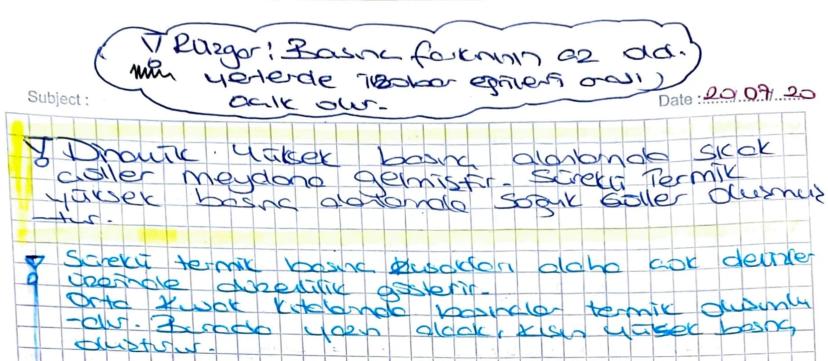 ∇ Rüzgar: Basınç farkının az ol.
min yerlerde izobar eğrileri aralı
açık olur.
Subject :
Date : 20 07 20
Dinamik Yüksek basınç alanlarında sıcak
çöller meydana gelmiştir. Sürekli Termik
yüksek basınç alanlarında Soğuk Çöller oluşmuş
-tur.
Sürekli termik basınç kuşakları daha çok denizler
üzerinde düzenlilik gösterir.
Orta kuşak kıtalarında basınçlar termik oluşumlu
-dur. Burada yazın alçak, kışın yüksek basınç
oluşur.